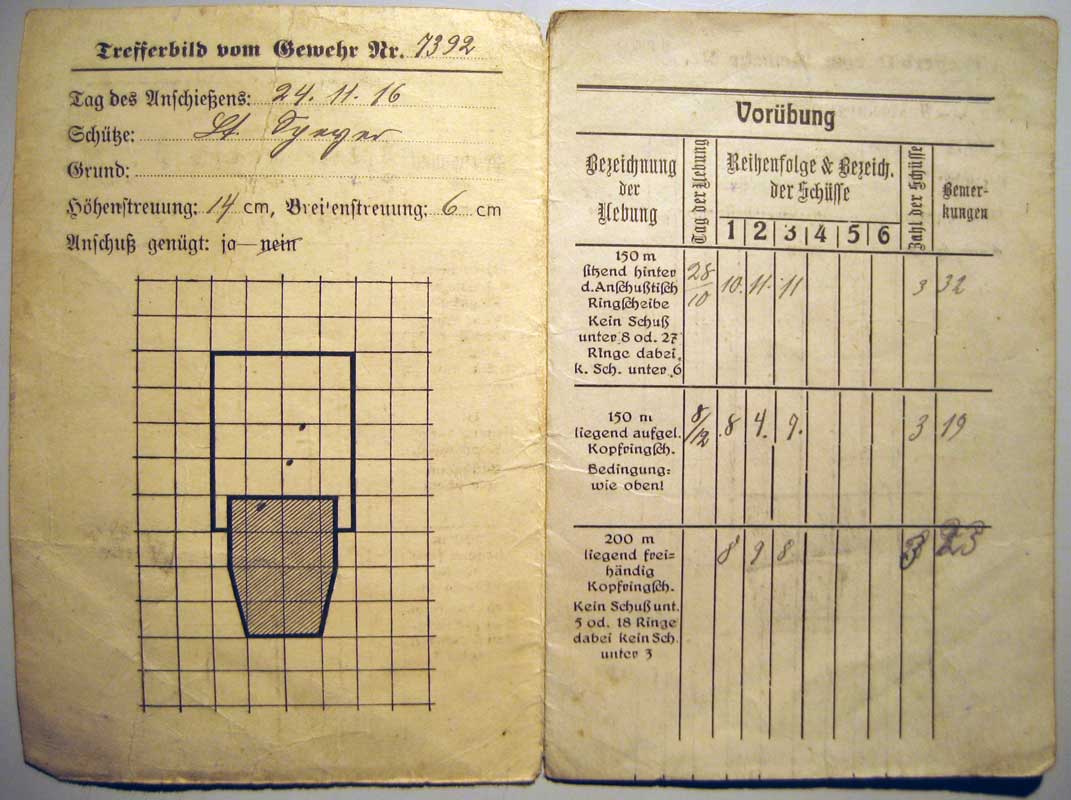 Trefferbild vom Gewehr Nr. 7392
Tag des Anschießens: 24. 11. 16
Schütze: Lt. Speyer
Grund:
Höhenstreuung: 14 cm, Breitenstreuung: 6 cm
Anschuß genügt: ja — nein
Vorübung
Bezeichnung der Uebung
Tag der Uebung
Reihenfolge & Bezeich. der Schüsse
1 2 3 4 5 6
Zahl der Schüsse
Bemer-
kungen
150 m
sitzend hinter
d. Anschußtisch
Ringscheibe
Kein Schuß
unter 8 od. 27
Ringe dabei
k. Sch. unter 6
28/10 10. 11. 11 3 32
150 m
liegend aufgel.
Kopfringsch.
Bedingung:
wie oben!
8/12 8 4. 7. 3 19
200 m
liegend frei=
händig
Kopfringsch.
Kein Schuß unt.
5 od. 18 Ringe
dabei kein Sch.
unter 3
8 9 8 3 25